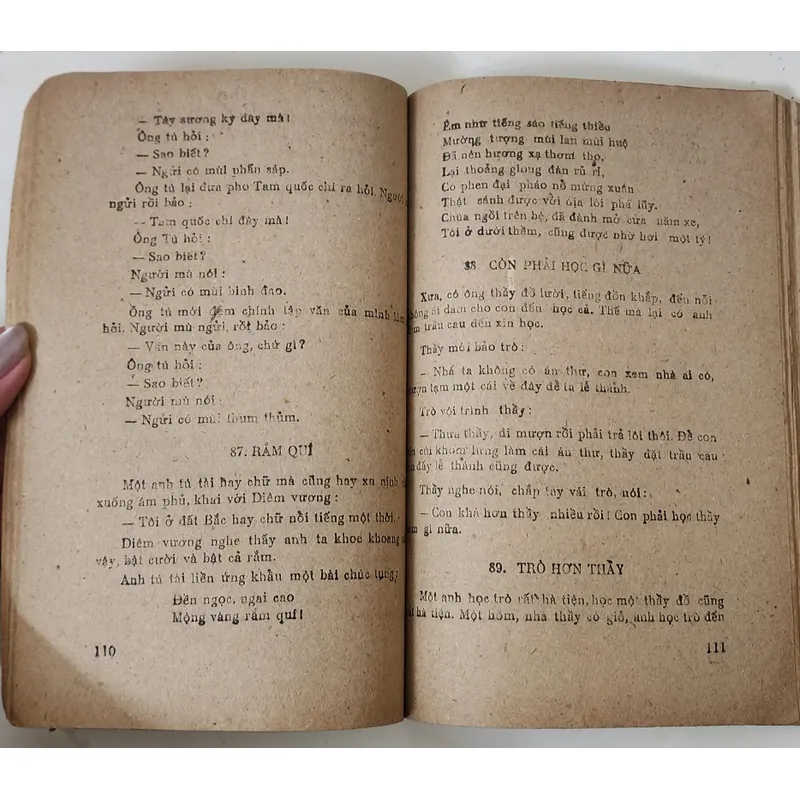 — Tây sương ký đây mà!
Ông tú hỏi:
— Sao biết?
— Ngửi có mùi phấn sáp.
Ông tú lại đưa pho Tam quốc chí ra hỏi. Người
ngửi rồi bảo:
— Tam quốc chí đây mà!
Ông Tú hỏi:
— Sao biết?
Người mù nói:
— Ngửi có mùi binh đao.
Ông tú mới đem chính tập văn của mình
hỏi. Người mù ngửi, rồi bảo:
— Văn này của ông, chứ gì?
Ông tú hỏi:
— Sao biết?
Người mù nói:
— Ngửi có mùi thum thủm.
87. RẮM QUÍ
Một anh tú tài hay chữ mà cũng hay xu nịnh
xuống âm phủ, khai với Diêm vương:
— Tôi ở đất Bắc hay chữ nổi tiếng một thời.
Diêm vương nghe thấy anh ta khoe khoang
vậy, bật cười và bật cả rắm.
Anh tú tài liền ứng khẩu một bài chúc tụng:
Đền ngọc, ngai cao
Mộng vàng rắm quí!
110
Êm như tiếng sáo tiếng thiều
Mường tượng mùi lan mùi huệ
Đã nên hương xạ thơm tho,
Lại thoảng giọng đàn rủ rỉ,
Có phen đại pháo nổ mừng xuân
Thật sánh được với địa lôi phá lũy.
Chúa ngồi trên bệ, đã đành mở cửa năm xe,
Tôi ở dưới thềm, cũng được nhờ hơi một tý!
88. CÒN PHẢI HỌC GÌ NỮA
Xưa, có ông thầy đồ lười, tiếng đồn khắp, đến nỗi
không ai dám cho con đến học cả. Thế mà lại có anh
trầu cau đến xin học.
Thầy mới bảo trò:
— Nhà ta không có án thư, con xem nhà ai có,
mượn tạm một cái về đây để ta lễ thánh.
Trò vội trình thầy:
— Thưa thầy, đi mượn rồi phải trả lôi thôi. Để con
cúi khom lưng làm cái án thư, thầy đặt trầu cau
đấy lễ thánh cũng được.
Thầy nghe nói, chắp tay vái trò, nói:
— Con khá hơn thầy nhiều rồi! Con phải học thầy
gì nữa.
89. TRÒ HƠN THẦY
Một anh học trò rất hà tiện, học một thầy đồ cũng
hà tiện. Một hôm, nhà thầy có giỗ, anh học trò đến
111